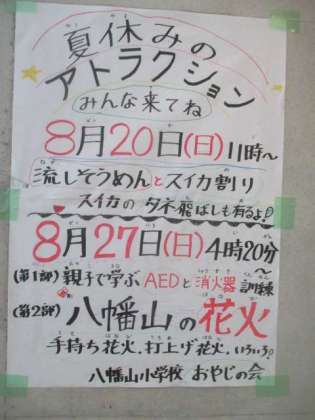 夏休みの
アトラクション
みんな来てね
8月20日(日) 11時~
流しそうめんとスイカ割り
スイカのタネ飛ばしも有るよ♪
8月27日(日) 4時20分~
(第1部) 親子で学ぶ AEDと消火器訓練
(第2部) 八幡山の花火
手持ち花火.打上げ花火.いろいろ♪
八幡山小学校 おやじの会